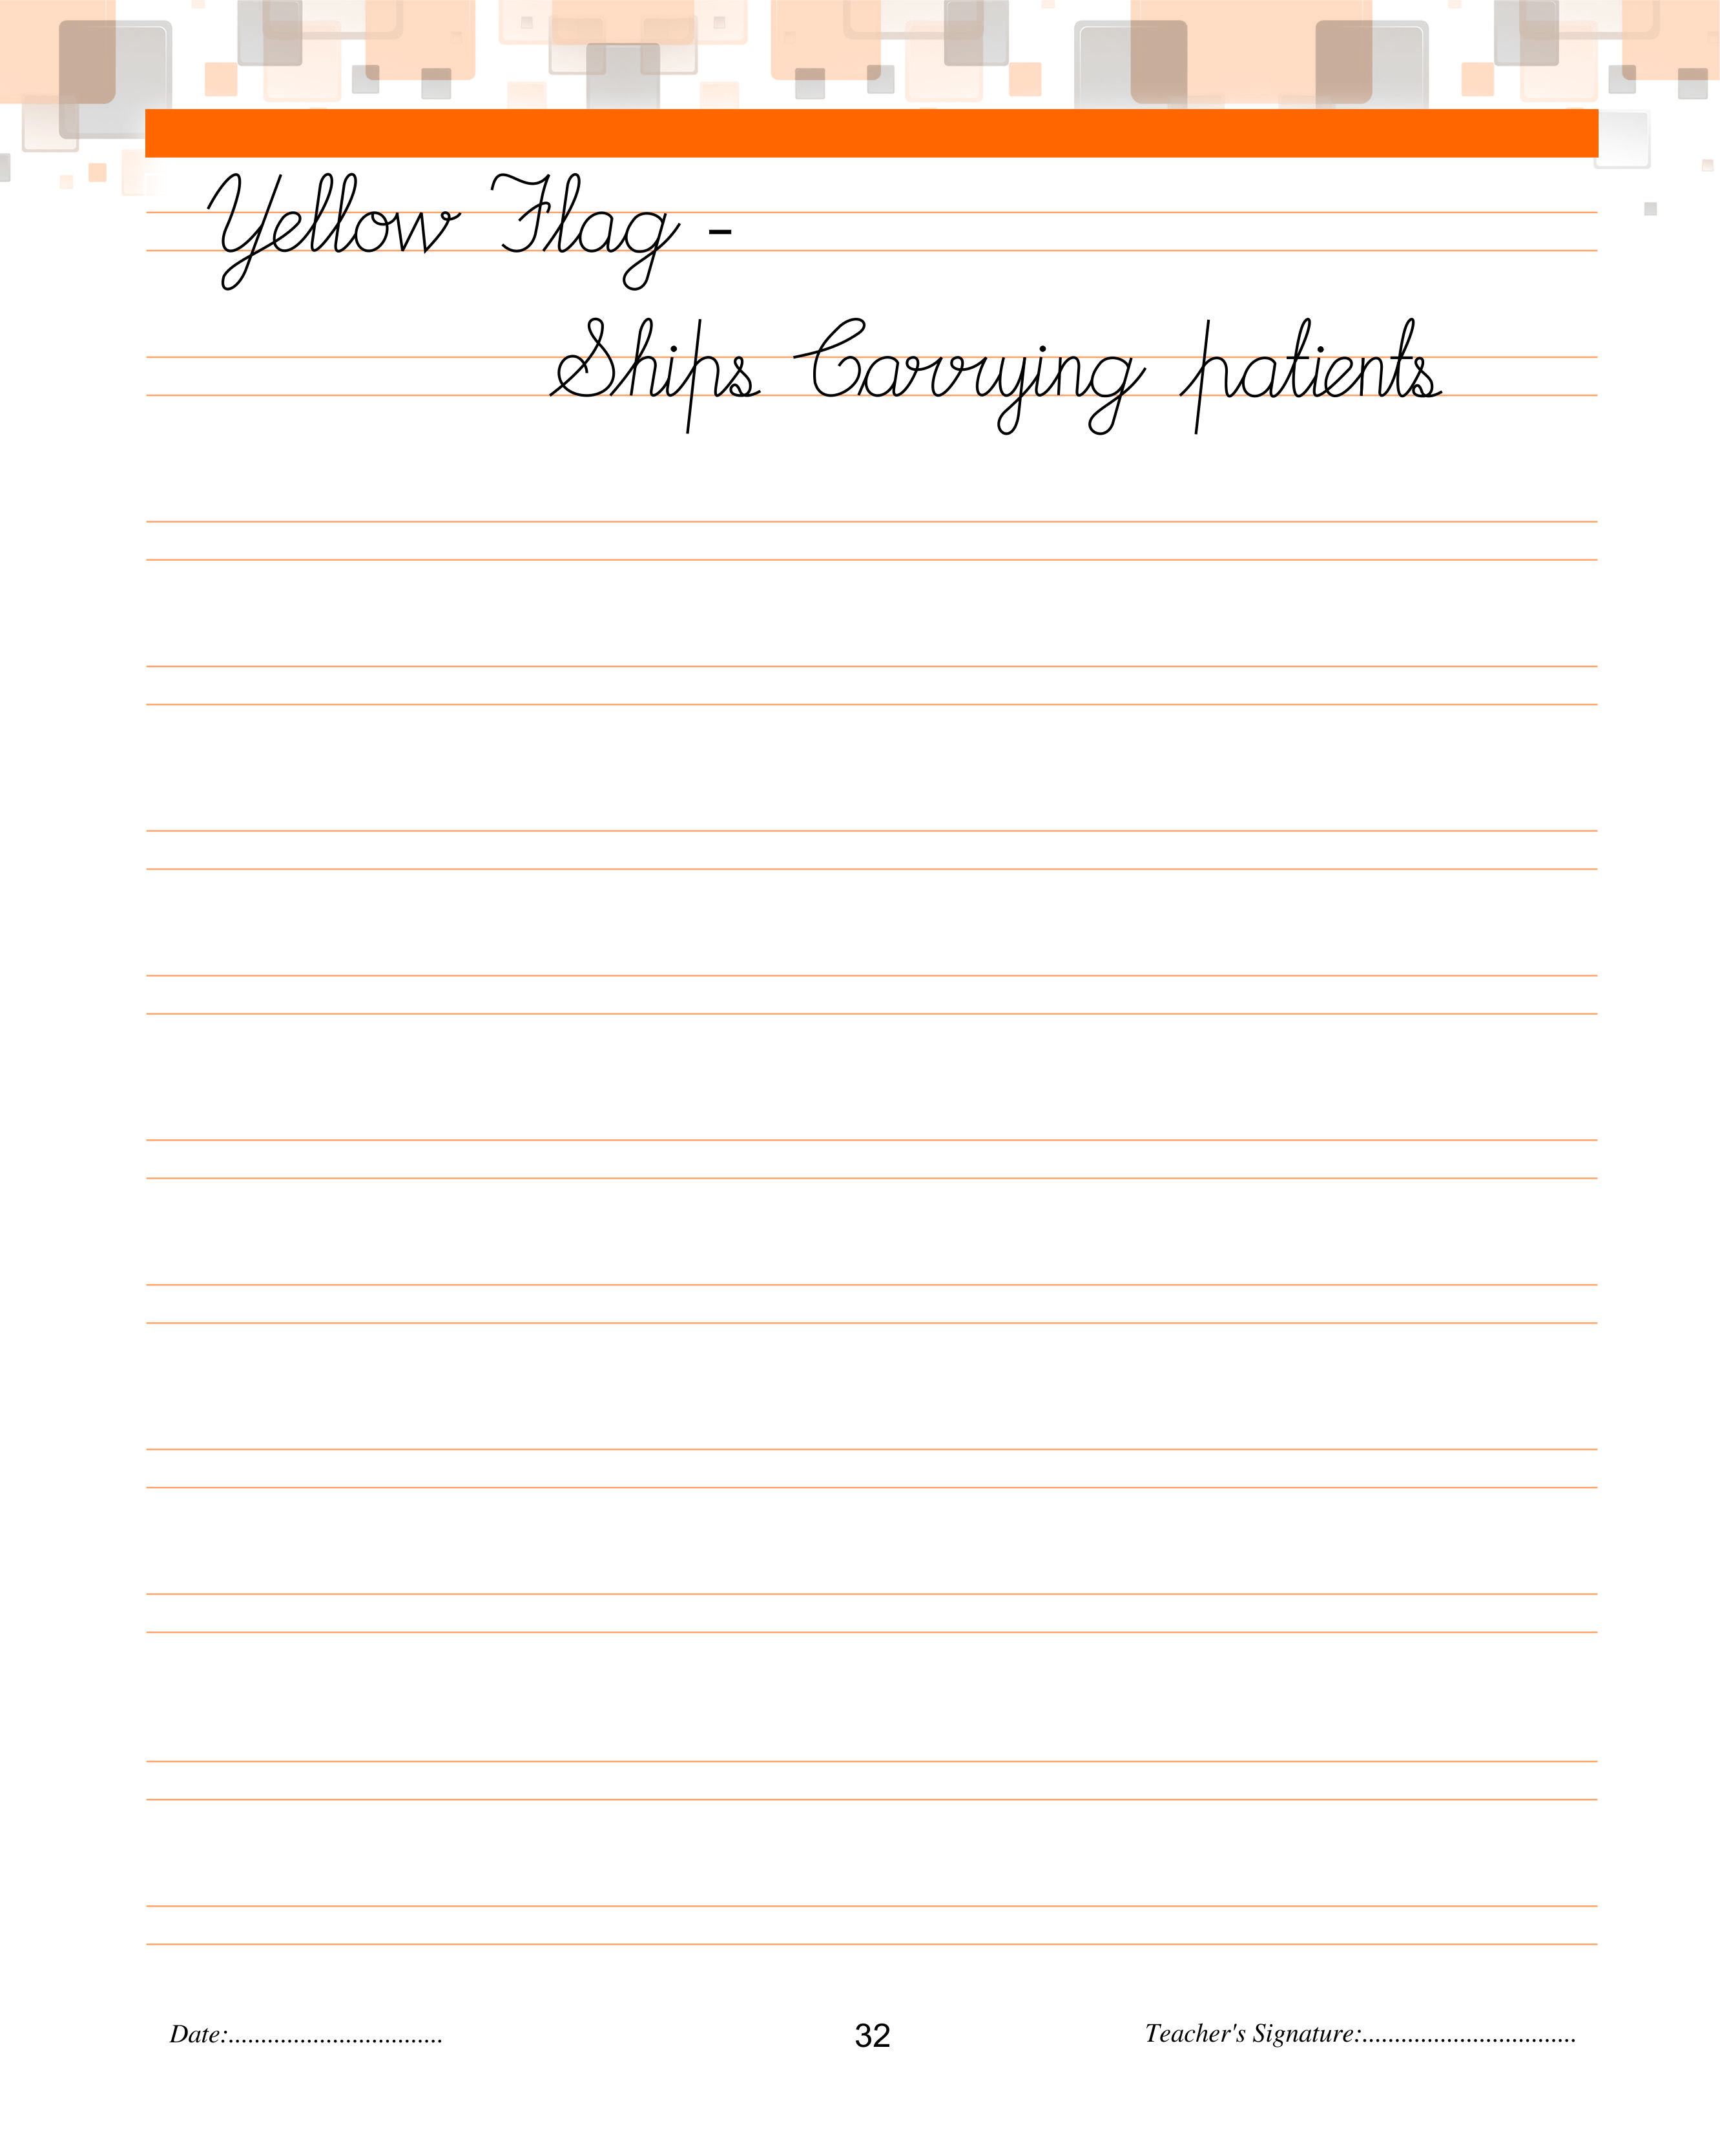 Yellow Flag -
Ships Carrying patients
Date:.................................
32
Teacher's Signature:.................................